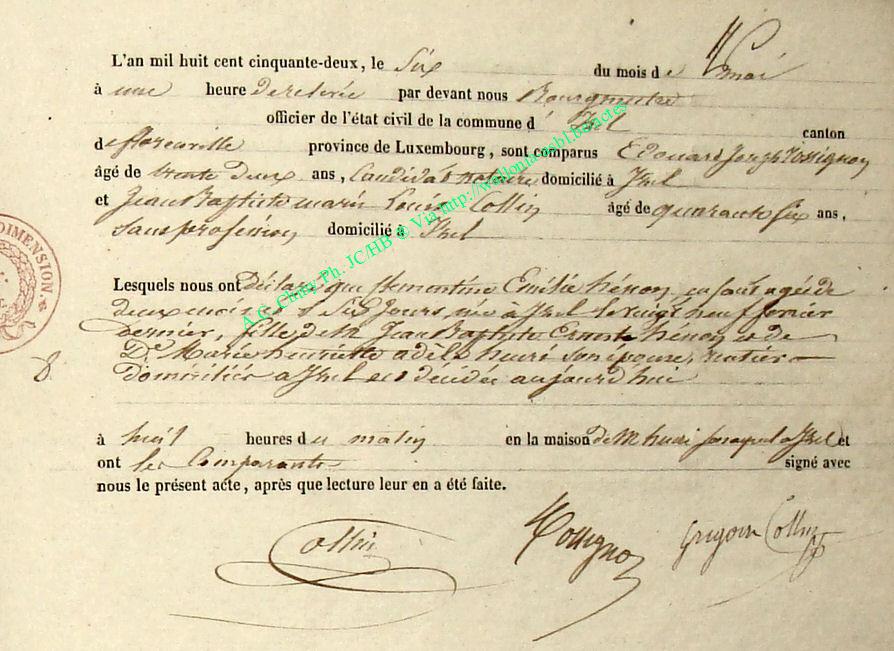 L'an mil huit cent cinquante-deux, le six du mois de mai
à une heure de relevée par devant nous Bourgmestre
officier de l'état civil de la commune d' Izel canton
de florenville province de Luxembourg, sont comparus Edouard Joseph Tossignon
âgé de trente deux ans, Candidat notaire domicilié à Izel
et Jean Baptiste marie Louis Collin âgé de quarante six ans,
sans profession domicilié à Izel
Lesquels nous ont Déclaré que Emilie hénon enfant agée de
deux mois et jours, née à Izel le vingt neuf fevrier
dernier, fille de M Jean Baptiste hénon et de
De Marie henriette adèle henri son épouse, rentier
Domiciliés a Izel est décédée aujourd'hui
à huit heures du matin en la maison de M henri a Izel et
ont les Comparants signé avec
nous le présent acte, après que lecture leur en a été faite.
Collin Tossignon Grégoire Collin
A.G. Chiny Ph. JC/HB © Via http://wallonia-asbl.be/actes
DIMENSION